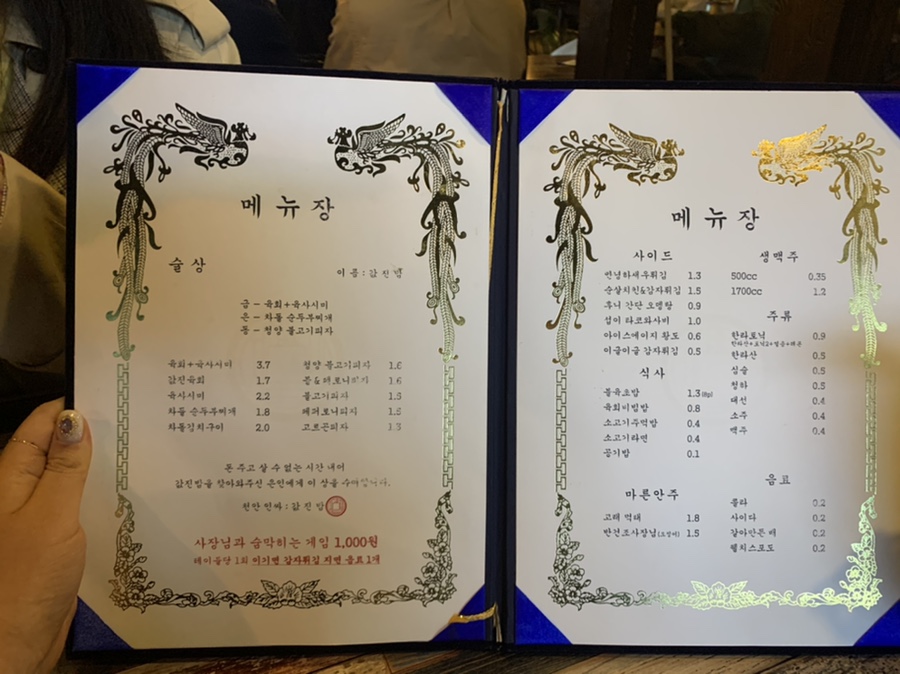 메뉴장
술상
이름 : 값진밤
금 - 육회+육사시미
은 - 차돌 순두부찌개
동 - 청양 불고기피자
육회+육사시미 3.7
값진육회 1.7
육사시미 2.2
차돌 순두부찌개 1.8
차돌김치구이 2.0
청양 불고기피자 1.6
불고기피자
페퍼로니피자
고르곤피자 1.3
돈 주고 살 수 없는 시간 내어
값진밤을 찾아와주신 은인에게 이 상을 수여합니다.
천안 언짜 : 값진밤
사장님과 숨막히는 게임 1,000원
테이블당 1회 이기면 감자튀김 지면 음료 1개
메뉴장
사이드
안녕하새우튀김 1.3
순살치킨&감자튀김 1.5
후니 간단 오뎅탕 0.9
섭이 타코와사비 1.0
아이스에이지 황도 0.6
이글이글 감자튀김 0.5
식사
불육초밥 1.3(8p)
육회비빔밥 0.8
소고기주먹밥 0.4
소고기라면 0.4
공기밥 0.1
마른안주
고래 먹태 1.8
반건조사장님(오징어) 1.5
생맥주
500cc 0.35
1700cc 1.2
주류
한라토닉 0.9
한라산+토닉2+얼음+레몬
한라산 0.5
심술 0.5
청하 0.5
대선 0.4
소주 0.4
맥주 0.4
음료
콜라 0.2
사이다 0.2
갈아만든 배 0.2
웰치스포도 0.2